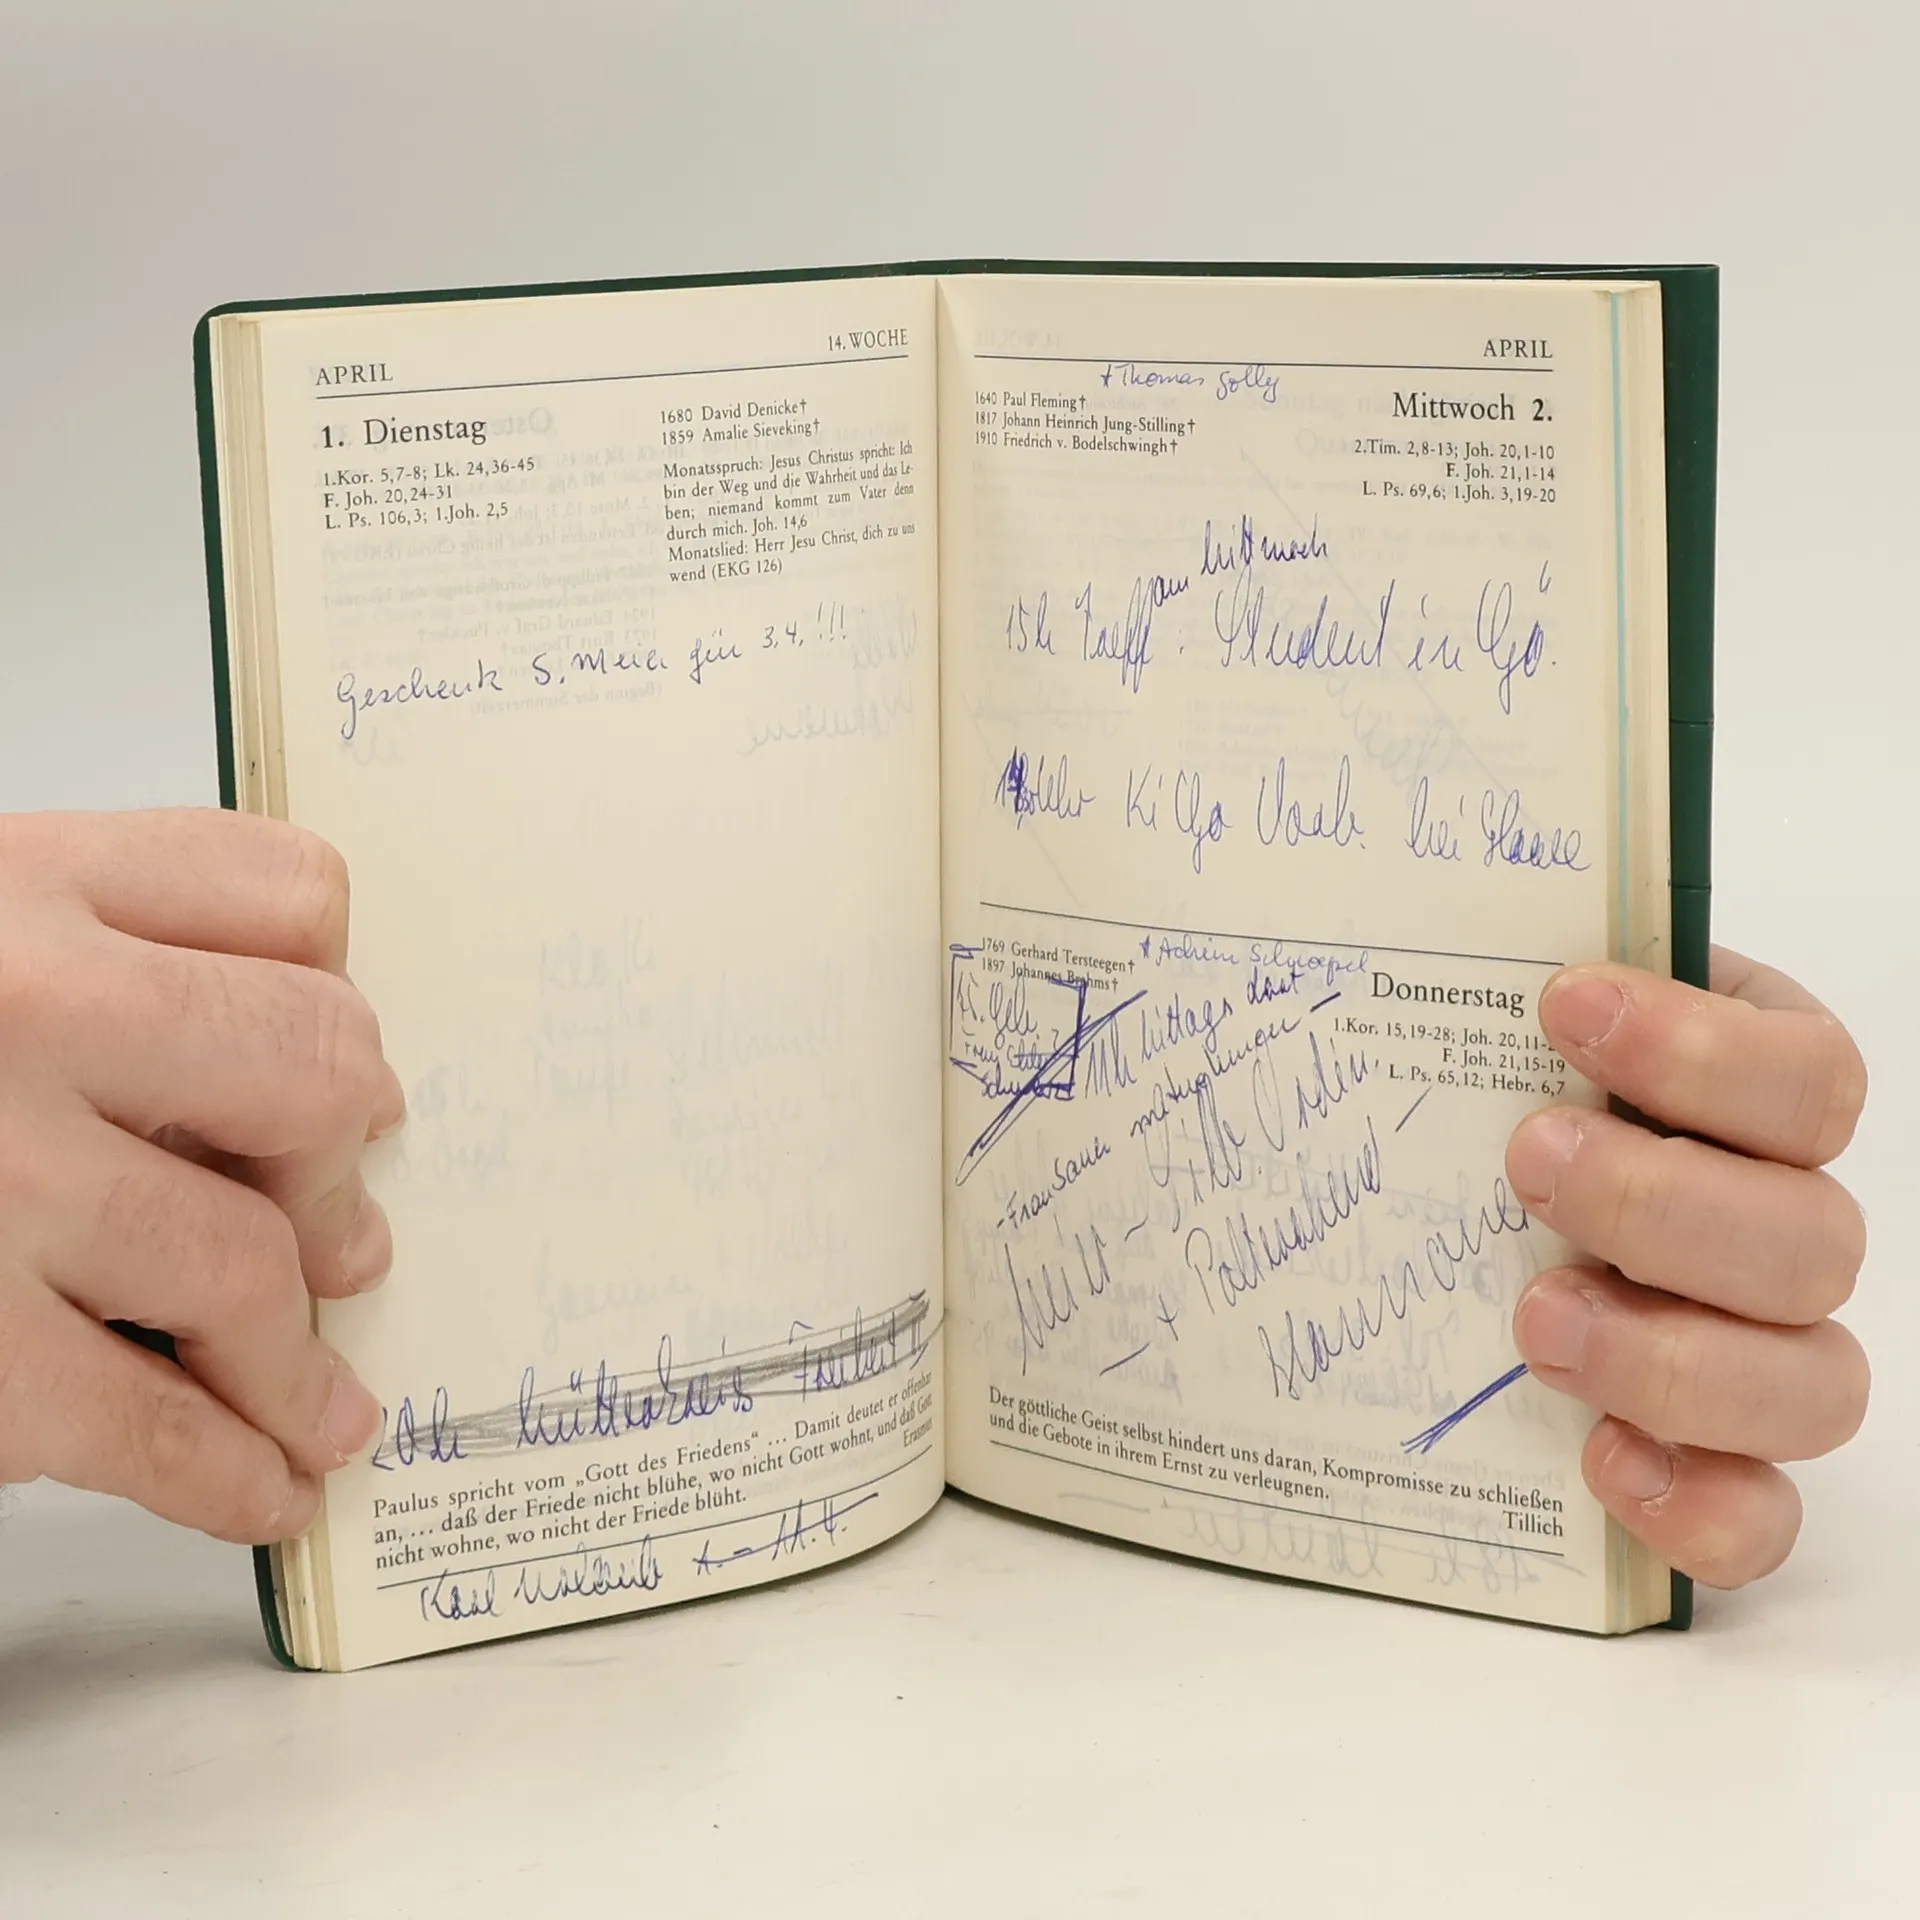 14. WOCHE
APRIL
1. Dienstag
1.Kor. 5,7-8; Lk. 24,36-45
F. Joh. 20,24-31
L. Ps. 106,3; 1.Joh. 2,5
1680 David Denicke†
1859 Amalie Sieveking†
Monatsspruch: Jesus Christus spricht: Ich
bin der Weg und die Wahrheit und das Le-
ben; niemand kommt zum Vater denn
durch mich. Joh. 14,6
Monatslied: Herr Jesu Christ, dich zu uns
wend (EKG 126)
Geschenk S. Meier für 3.4. !!!
20h Mütterkreis Freiheit II
Paulus spricht vom „Gott des Friedens“ ... Damit deutet er offenbar
an, ... daß der Friede nicht blühe, wo nicht Gott wohnt, und daß Gott
nicht wohne, wo nicht der Friede blüht.
Erasmus
Karl 1. – 11.4.
APRIL
* Thomas
1640 Paul Fleming†
1817 Johann Heinrich Jung-Stilling†
1910 Friedrich v. Bodelschwingh†
Mittwoch 2.
2.Tim. 2,8-13; Joh. 20,1-10
F. Joh. 21,1-14
L. Ps. 69,6; 1.Joh. 3,19-20
am Mittwoch
15h Treff: Student in Gö."
Uhr KiGo Vorb. bei Haase
1769 Gerhard Tersteegen†
1897 Johannes Brahms†
* Achim
Donnerstag
1.Kor. 15,19-28; Joh. 20,11-
F. Joh. 21,15-19
L. Ps. 65,12; Hebr. 6,7
11h Mittags dort
- Frau Sauer –
+ Polterabend –
Der göttliche Geist selbst hindert uns daran, Kompromisse zu schließen
und die Gebote in ihrem Ernst zu verleugnen.
Tillich